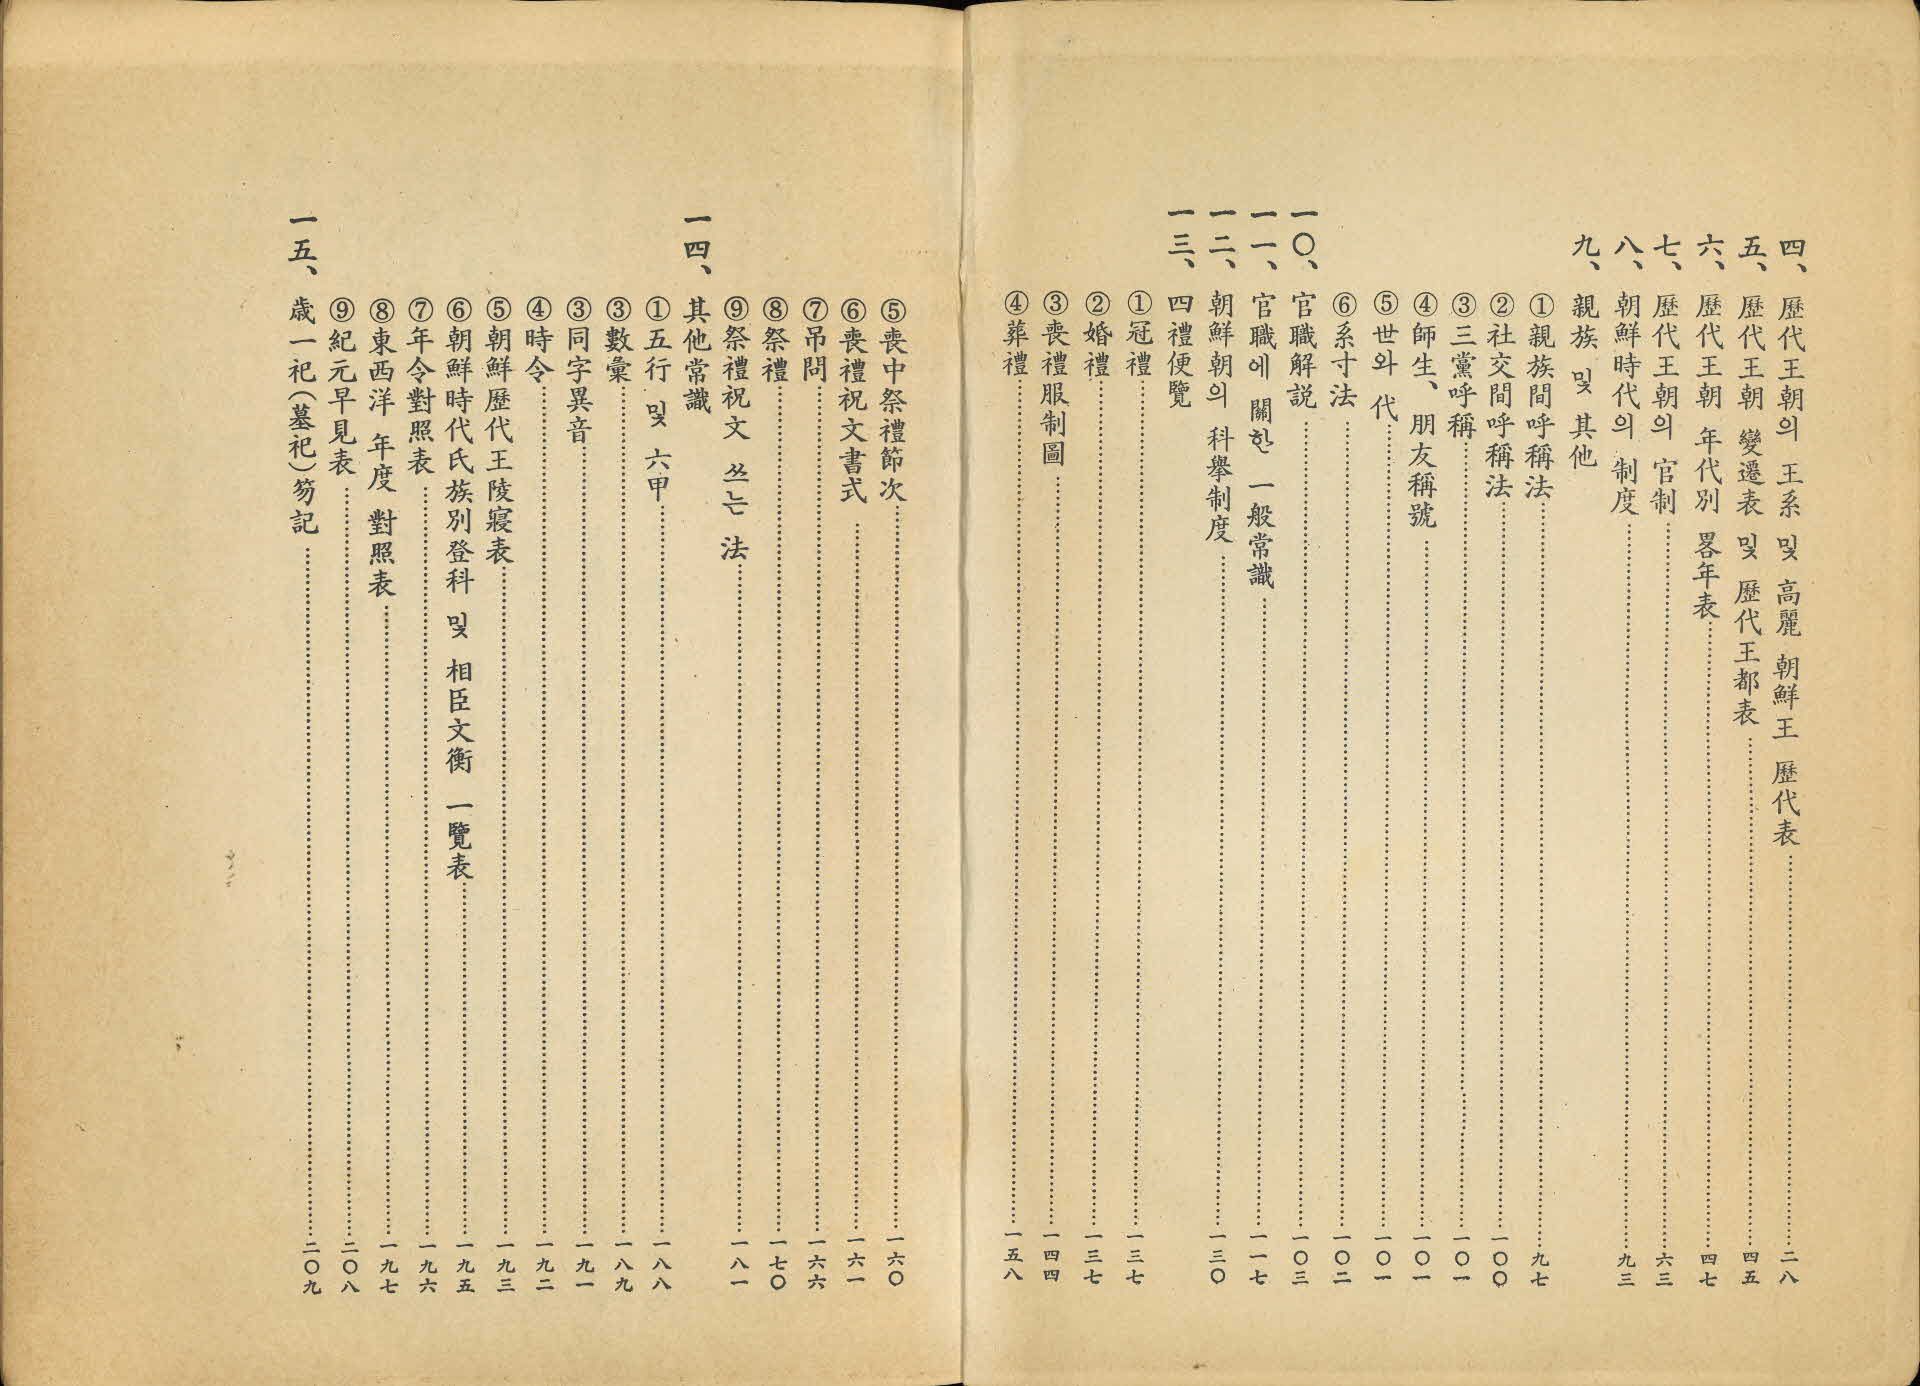 四、歷代王朝의 王系 및 高麗 朝鮮王 歷代表……二八
五、歷代王朝 變遷表 및 歷代王都表……四五
六、歷代王朝 年代別 畧年表……四七
七、歷代王朝의 官制……六三
八、朝鮮時代의 制度……九三
九、親族 및 其他
①親族間呼稱法……九七
②社交間呼稱法……一〇〇
③三黨呼稱……一〇一
④師生、朋友稱號……一〇一
⑤世와 代……一〇一
⑥系寸法……一〇二
一〇、官職解説……一〇三
一一、官職에 關한 一般常識……一一七
一二、朝鮮朝의 科擧制度……一三〇
一三、四禮便覽
①冠禮……一三七
②婚禮……一三七
③喪禮服制圖……一四四
④葬禮……一五八
⑤喪中祭禮節次……一六〇
⑥喪禮祝文書式……一六一
⑦吊問……一六六
⑧祭禮……一七〇
⑨祭禮祝文 쓰는 法……一八一
一四、其他常識
①五行 및 六甲……一八八
③數彙……一八九
③同字異音……一九一
④時令……一九二
⑤朝鮮歷代王陵寢表……一九三
⑥朝鮮時代氏族別登科 및 相臣文衡 一覽表……一九五
⑦年令對照表……一九六
⑧東西洋 年度 對照表……一九七
⑨紀元早見表……二〇八
一五、歳一祀(墓祀)笏記……二〇九